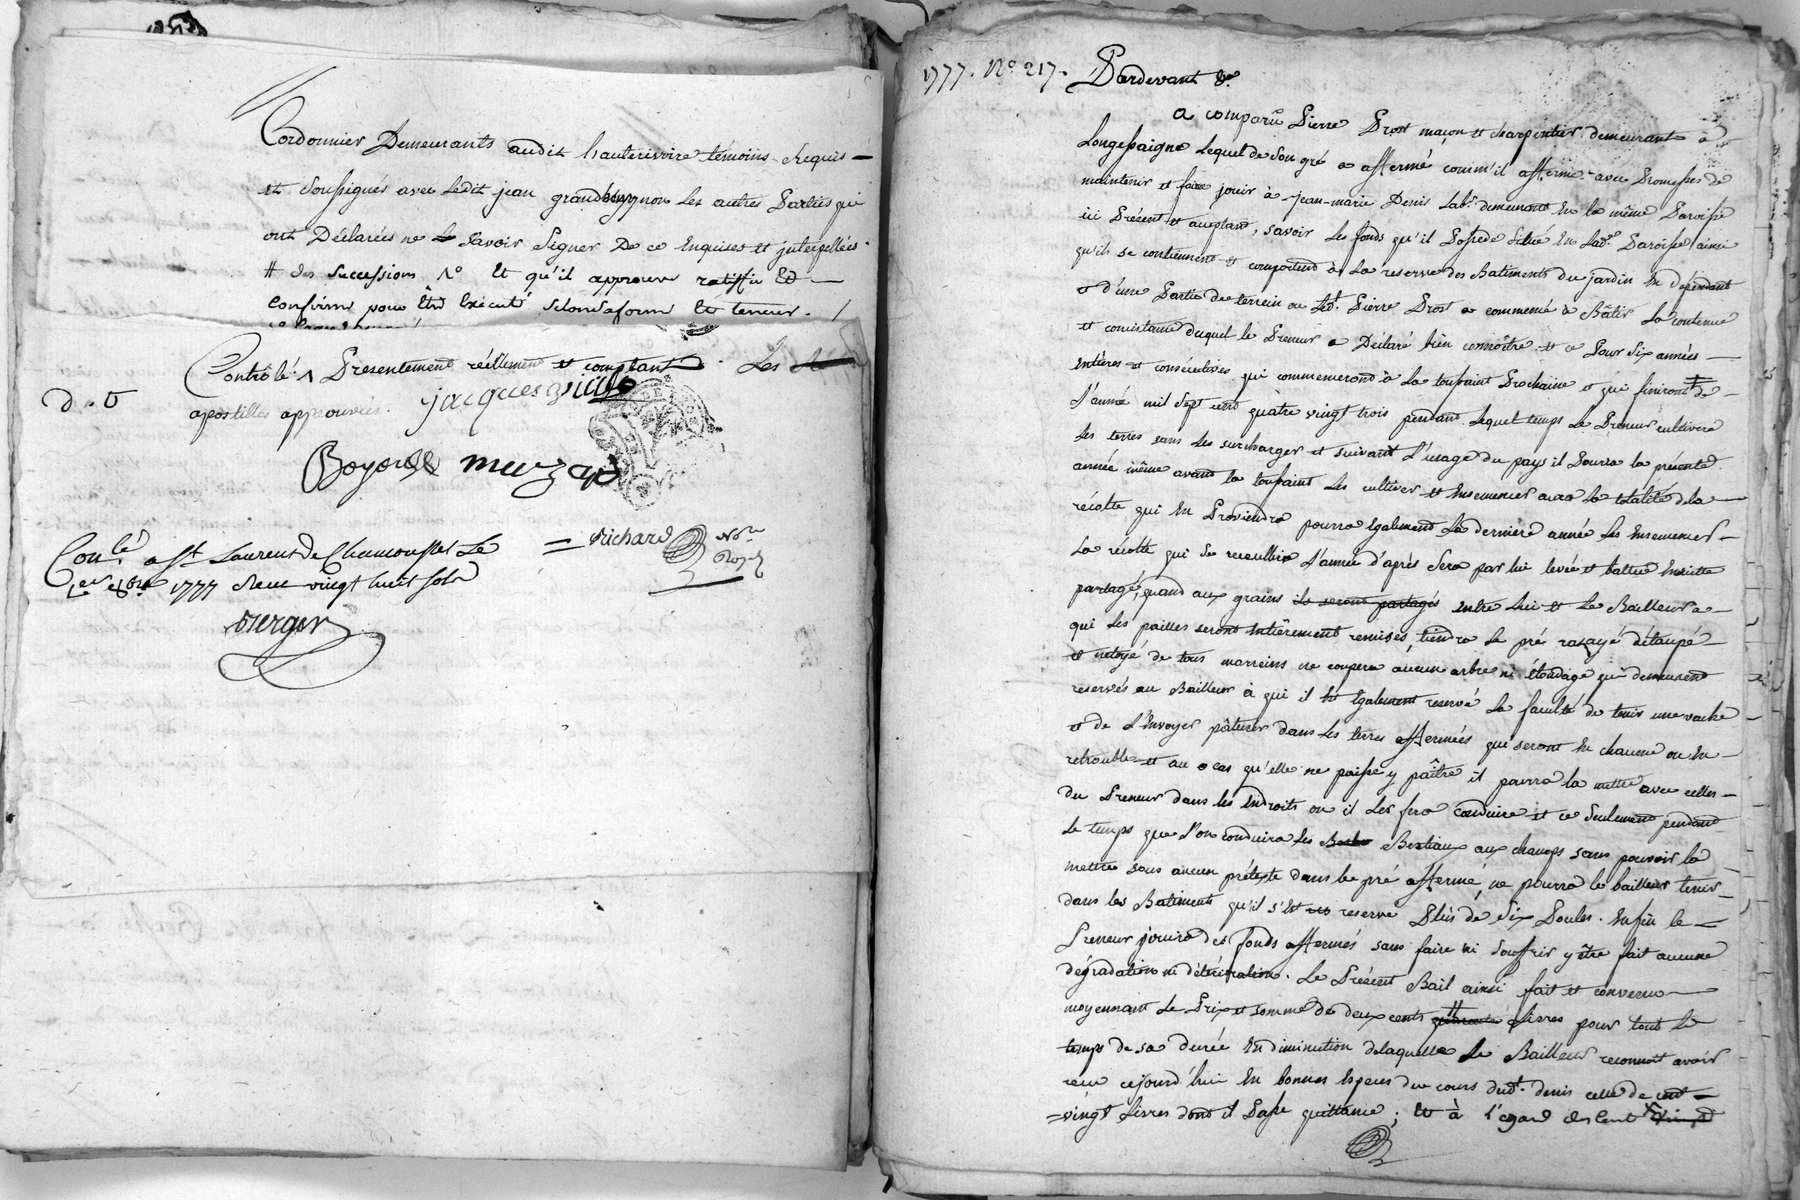 Cordonnier Demeurants audit hauterivoire témoins requis
et soussignés avec ledit jean grand les autres Parties qui
ont Déclarées ne savoir signer De ce Enquises et jnterpellées.
# des succession No et qu'il approuve ratiffie Et
confirme pour Etre Exécuté selon sa forme Et teneur. /
Contrôlé ^ Présentement réellement et comptant. Les
apostilles approuvées.
D. V
jacques
muzard
= Richard No.re Roy.l
Con.lé a St Laurent de Chamousset Le
1777 Reçu vingt huit sols
Berger
1777. No. 217. Pardevant &c.
a comparu Pierre Prost maçon et charpentier demeurant à
Longessaigne Lequel de son gré a affermé comm'il afferme avec Promesses de
maintenir et faire jouir à jean-marie Denis Lab.r demeurant En la même Paroisse
ici Présent et acceptant, savoir Les fonds qu'il Possede situé En lad.e Paroisse ainsi
qu'ils se contiennent et comportent à La reserve des Batiments du jardin En dépendant
et d'une Partie de terrein ou led. Pierre Prost a commencé à Bâtir La contenue
et consistance duquel le Preneur a Déclaré bien connoître et ce Pour six années
entières et consécutives qui commenceront à La toussaint Prochaine et qui finiront de
L'année mil sept cent quatre vingt trois pendant Lequel temps Le Preneur cultivera
Les terres sans Les surcharger et suivant L'usage du pays il Pourra la présente
année même avant la toussaint Les cultiver et Ensemencer aura la totalité de la
récolte qui En Proviendra pourra Egalement La derniere année Les Ensemencer
La récolte qui se recueillira L'année d'après sera par lui levée et battue Ensuitte
partagé, quand aux grains ils seront partagés entre Lui et Le Bailleur a
qui Les pailles seront Entièrement remises, tiendra Le pré razayé détaupé
et netoyé de tous marreins ne coupera aucun arbre ni élondage qui demeurent
reservés au Bailleur à qui il Est Egalement reservé La faculté de tenir une vache
et de L'Envoyer pâturer dans Les terres affermées qui seront En chaume ou En
retrouble et au cas qu'elle ne puisse y paître il pourra la mettre avec celles
du Preneur dans les Endroits ou il Les fera conduire et ce seulement pendant
Le temps que L'on conduira Les Bestiaux aux champs sans pouvoir La
mettre sous aucun prétexte dans le pré affermé, ne pourra le bailleur tenir
dans les Batiments qu'il s'est reservé Plus de six Poules. Enfin le
Preneur jouira des fonds affermés sans faire ni souffrir y être fait aucune
dégradation ni détérioration. Le Présent Bail ainsi fait et convenu
moyennant Le Prix et somme de deux cents quarante Livres pour tout Le
temps de sa durée En diminution de laquelle Le Bailleur reconnoit avoir
reçu cejourd'hui En bonnes Especes du cours dud. denis celle de cent
vingt Livres dont il Passe quittance ; et à l'egard des cent vingt